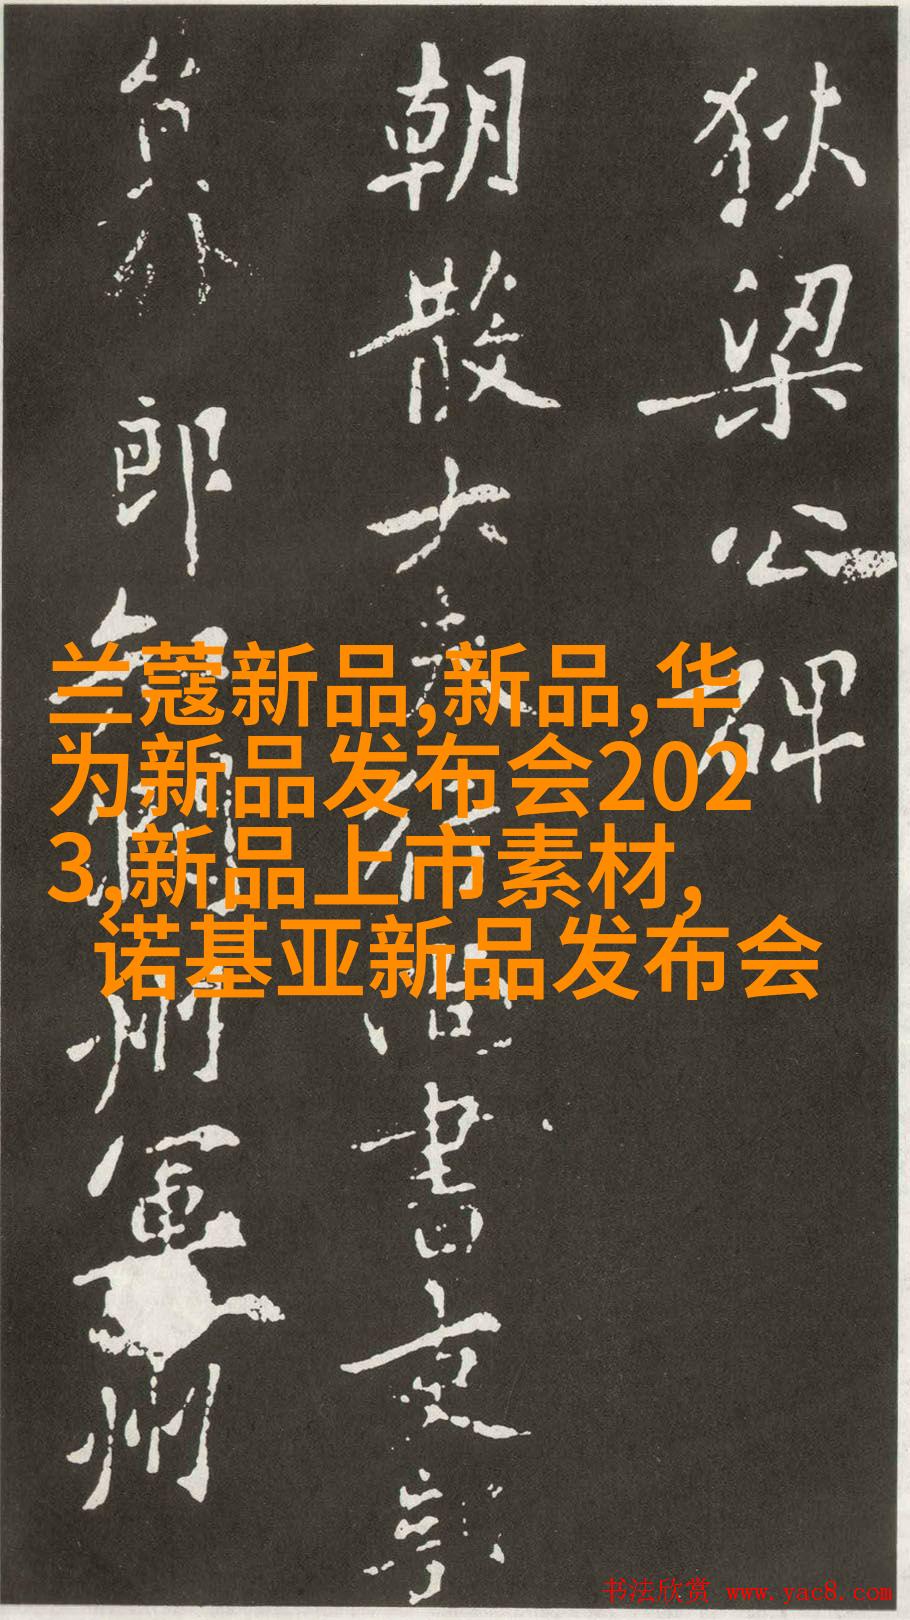 狄梁公碑
朝散大夫行尚書吏
郎
州軍州
兰蔻新品,新品,华
为新品发布会202
3,新品上市素材,
诺基亚新品发布会
书法欣赏 www.yac8.com